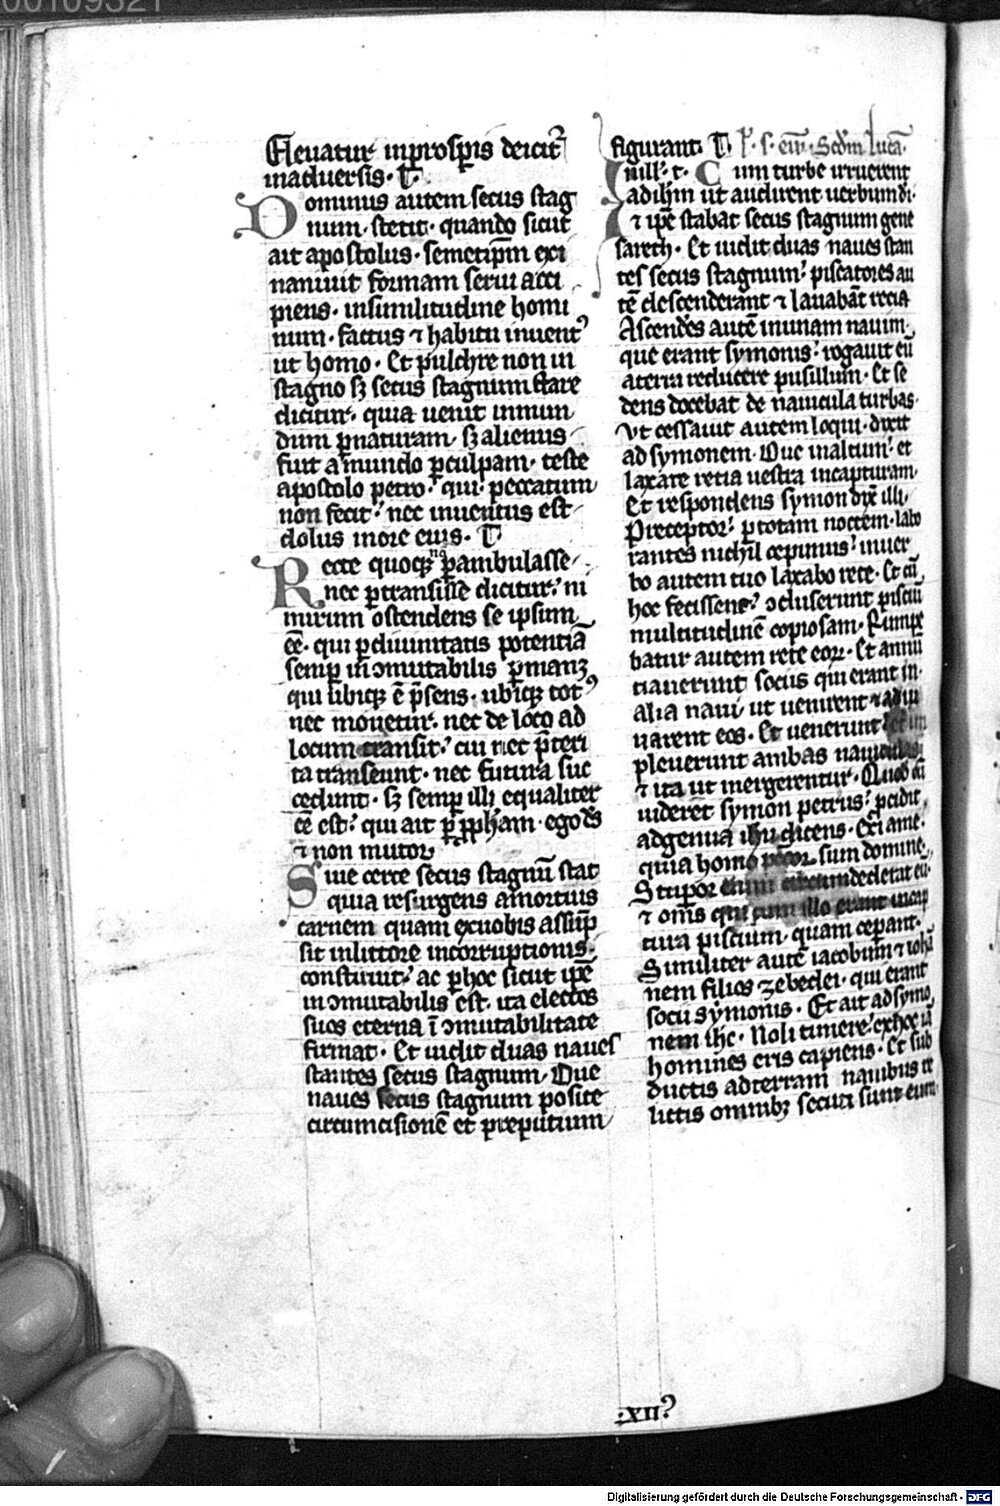 00109321
Eleuatur inprosꝑis deicit᷑
inaduersis· T
Dominus autem secus stag
num· stetit· quando sicut
ait apostolus· semetip̄m exi
naniuit formam serui acci
piens· insimilitudine homi
num· factus ⁊ habitu inuentꝰ
ut homo· Et pulchre non in
stagno sꝫ secus stagnum stare
dicitur· quia uenit inmun
dum ꝑnaturam· sꝫ alienus
fuit a mundo ꝑculpam· teste
apostolo petro· qui· peccatum
non fecit· nec inuentus est
dolus inore eius· T
Recte quoqꝫ nō ꝑambulasse
nec ꝑtransisse dicitur· ni
mirum ostendens se ipsum
eē· qui ꝑdiuinitatis potentiā
semꝑ inꝯmutabilis ꝑmanꝫ
qui ubiqꝫ ē p̄sens· ubiqꝫ totꝰ
nec mouetur· nec de loco ad
locum transit· cui nec p̄teri
ta transeunt· nec futura suc
cedunt· sꝫ semꝑ illi equaliter
eē est· qui ait ꝑ ꝓpham· ego dꝰ̄s
⁊ non mutor
Siue certe secus stagnū stat
quia resurgens amortuis
carnem quam exnobis assūp
sit inlittore incorruptionis·
constituit· ac ꝑhoc sicut ip̄e
inꝯmutabilis est· ita electos
suos eterna īꝯmutabilitate
firmat· Et uidit duas naues
stantes secus stagnum· Due
naues secus stagnum posite
circumcisionē et preputium
figurant· T Scd̄m lucā·
Inill· t· Cum turbe irruerent
adih̄m ut audirent uerbum di·
⁊ ip̄e stabat secus stagnum gene
sareth· Et uidit duas naues stan
tes secus stagnum· piscatores au
tē descenderant ⁊ lauabāt recia
Ascendēs autē inunam nauim·
que erant symonis· rogauit eū
aterra reducere pusillum· Et se
dens docebat de nauicula turbas·
Vt cessauit autem loqui· dixit
ad symonem· Duc inaltum· et
laxare retia uestra incapturam·
Et respondens symon dix̄ illi·
Preceptor· ꝑtotam noctem· labo
rantes nichil cepimus· inuer
bo autem tuo laxabo rete· Et cū
hoc fecissent· ꝯcluserunt pisciū
multitudinē copiosam· Rumpe
batur autem rete eoꝝ· Et annū
tiauerunt sociis qui erant in·
alia naui ut uenirent ⁊ adiu
uarent eos· Et uenerunt et im
pleuerunt ambas nauiculas·
⁊ ita ut mergerentur· Quod cū
uideret symon petrus· pcidit
adgenua ihu dicens· Exi ame·
quia homo pec̄cor sum domine·
Stupor enim circumdederat eū·
⁊ om̄s qui cum illo erant incap
tura piscium· quam ceperant·
Similiter autē iacobum ⁊ iohā
nem filios zebedei· qui erant
socii symonis· Et ait ad symo
nem ihc· Noli timere· exhoc iā
homines eris capiens· Et sub
ductis adterram nauibus re
lictis omnibꝫ secuti sunt eum
·XII·
Digitalisierung gefördert durch die Deutsche Forschungsgemeinschaft - DFG